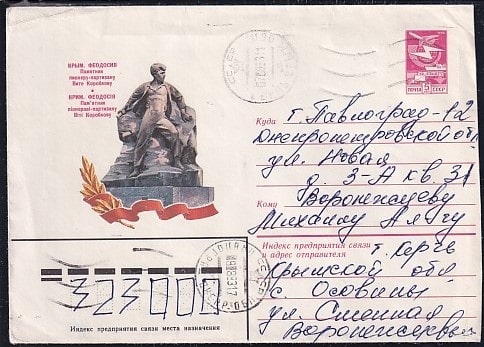 КРЫМ. ФЕОДОСИЯ
Памятник
пионеру-партизану
Вите Коробкову
КРИМ. ФЕОДОСІЯ
Пам'ятник
піонерові-партизану
Віті Коробкову
ПОЧТА 5 СССР
Куда г. Павлоград-12
Днепропетровской обл
ул. Новая
д. 3-А кв 31
Кому Воронежцеву
Михаилу
Индекс предприятия связи
и адрес отправителя
г. Керчь
Крымской обл
с. Осовины
ул. Сменная
323000
Индекс предприятия связи места назначения